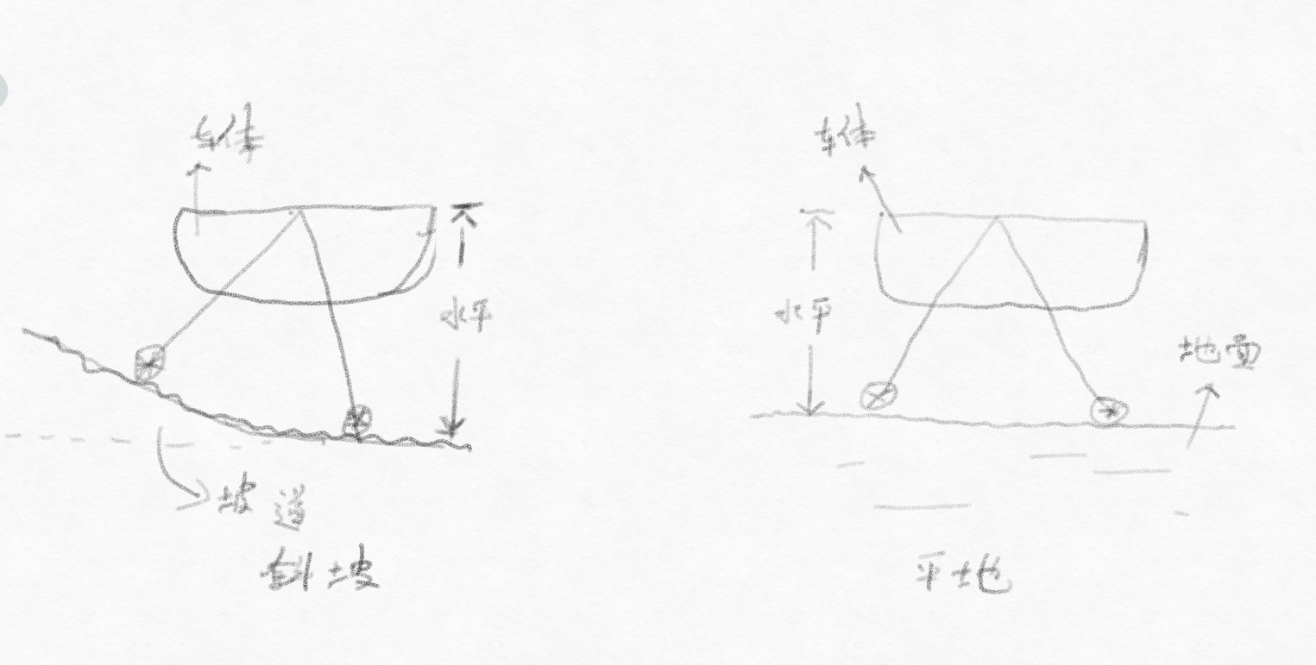 车体
水平
坡道
斜坡
车体
水平
地面
平地